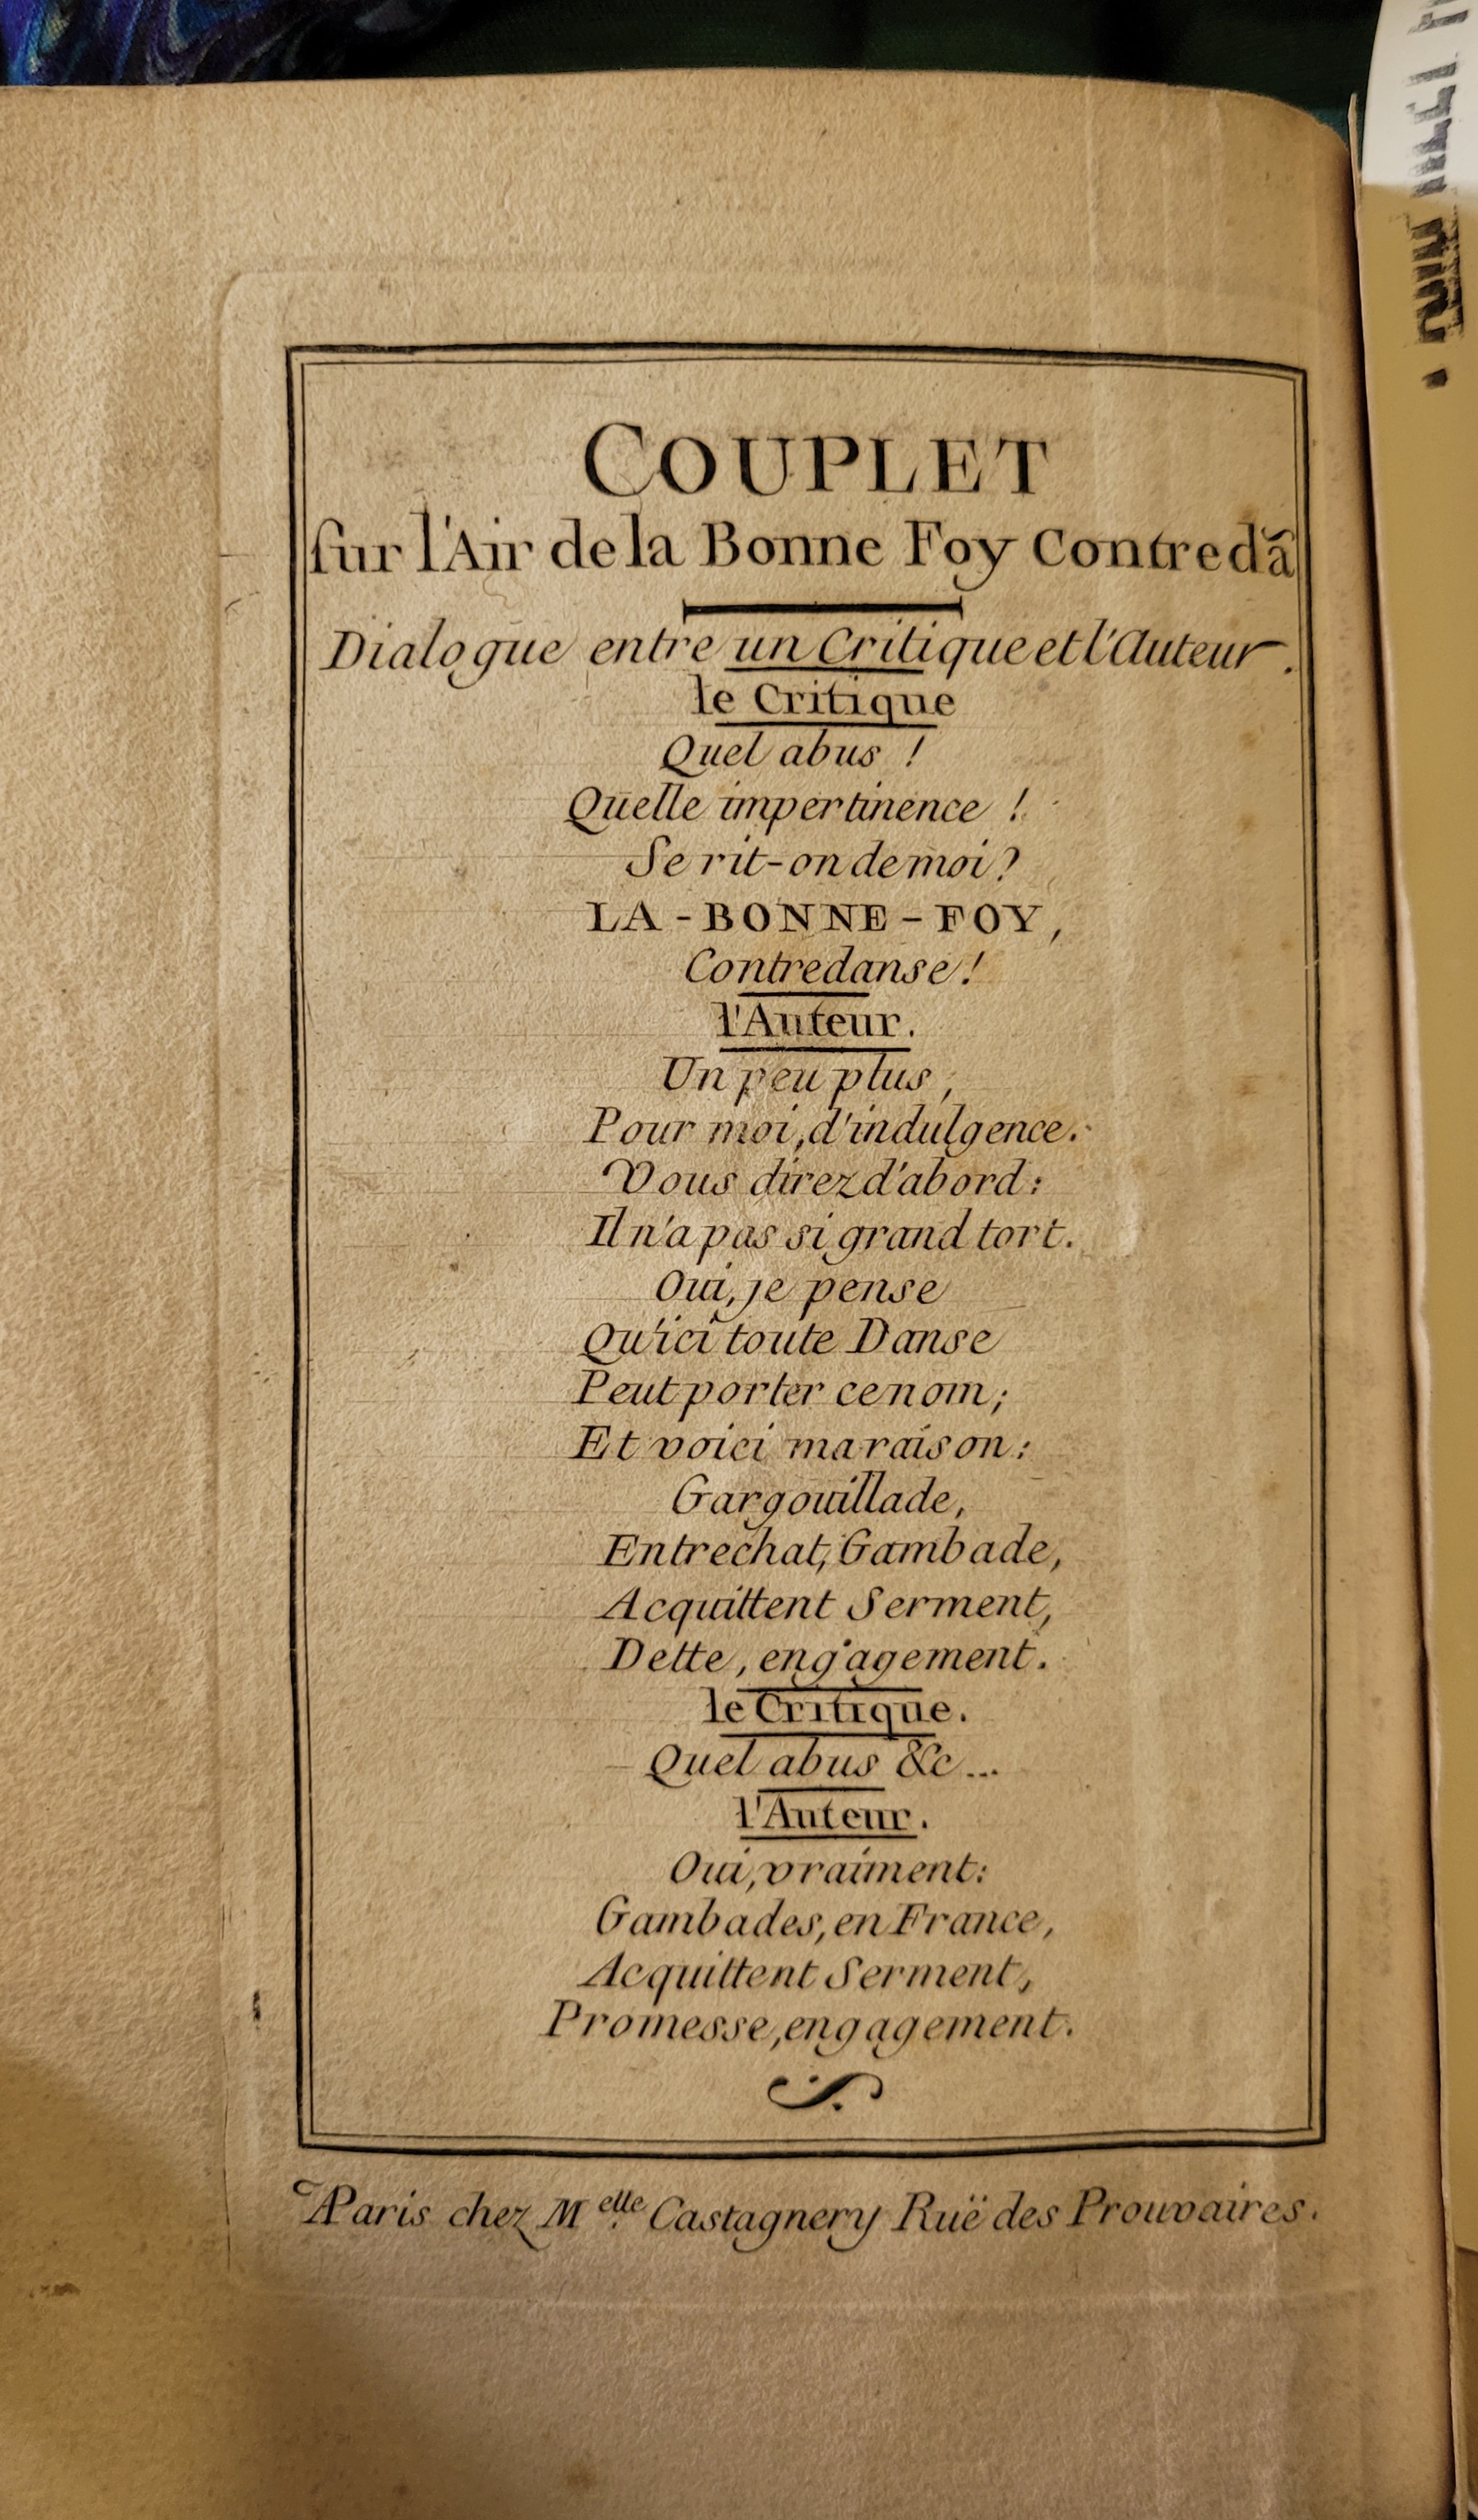 COUPLET
sur l'Air de la Bonne Foy Contredã
Dialogue entre un Critique et l'Auteur.
le Critique
Quel abus !
Quelle impertinence !
Se rit-on de moi ?
LA-BONNE-FOY,
Contredanse !
l'Auteur.
Un peu plus,
Pour moi, d'indulgence.
Vous direz d'abord :
Il n'a pas si grand tort.
Oui, je pense
Qu'ici toute Danse
Peut porter ce nom ;
Et voici ma raison :
Gargouillade,
Entrechat, Gambade,
Acquittent Serment,
Dette, engagement.
le Critique.
Quel abus &c...
l'Auteur.
Oui, vraiment :
Gambades, en France,
Acquittent Serment,
Promesse, engagement.
A Paris chez M.elle Castagnery Ruë des Prouvaires.